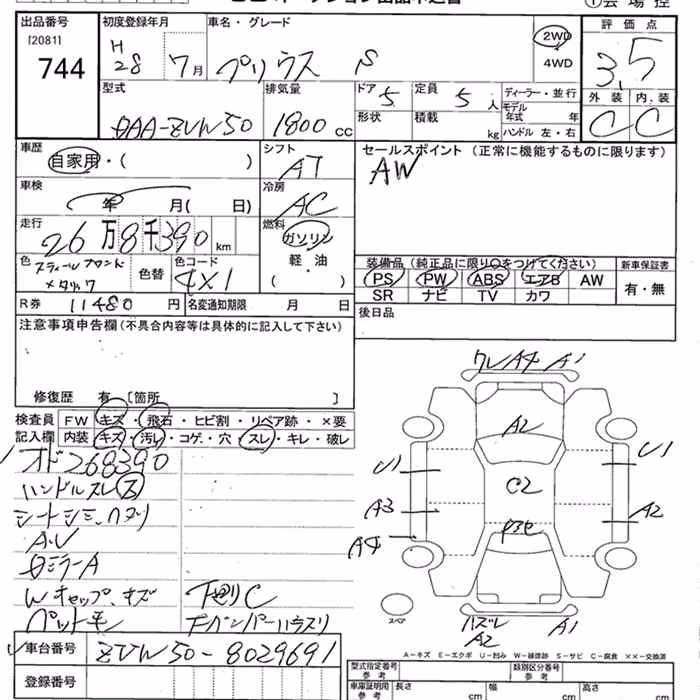 出品番号 初度登録年月 車名・グレード 評価点
[20811] H 28 7月 プリウス S 2WD 4WD 3.5
744
型式 排気量 ドア 定員 ディーラー・並行 外装 内装
DAA-ZVW50 1800 CC 5 5人 モデル年式 年 C C
形状 積載 kg ハンドル 左・右
車歴 シフト セールスポイント (正常に機能するものに限ります)
自家用・( ) AT AW
車検 冷房
年 月( 日) AC
走行 燃料
26万8千390km ガソリン
軽・油
( )
色 色替 色コード 装備品(純正品に限り○をつけてください) 新車保証書
スティールブロンドメタリック 4X1 PS PW ABS エアB AW 有・無
SR ナビ TV カワ
R券 11480円 名変通知期限 月 日 後日品
注意事項申告欄(不具合内容等は具体的に記入して下さい)
修復歴 有 [箇所 ]
検査員 FW キズ・飛石・ヒビ割・リペア跡・×要
記入欄 内装 キズ・汚レ・コゲ・穴・スレ・キレ・破レ
オド268390
ハンドルスレ
シートシミ
W キャップ、キズ 下廻りC
ペット毛
車台番号 ZVW50-8029691
登録番号
A4 A1
A2
U1 U1
C2
A3 A2
A4
スペア A2 A1
A-キズ E-エクボ U-凹み W-補修跡 S-サビ C-腐食 ××-交換済
型式指定番号 参考 類別区分番号 参考
車庫証明用 参考 長さ cm 幅 cm 高さ cm